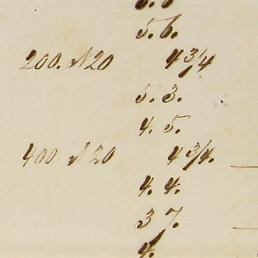 5. 6.
200. N20 4 3/4
5. 3.
4. 5.
400 N20 4 3/4.
4. 4.
3 7.
4.